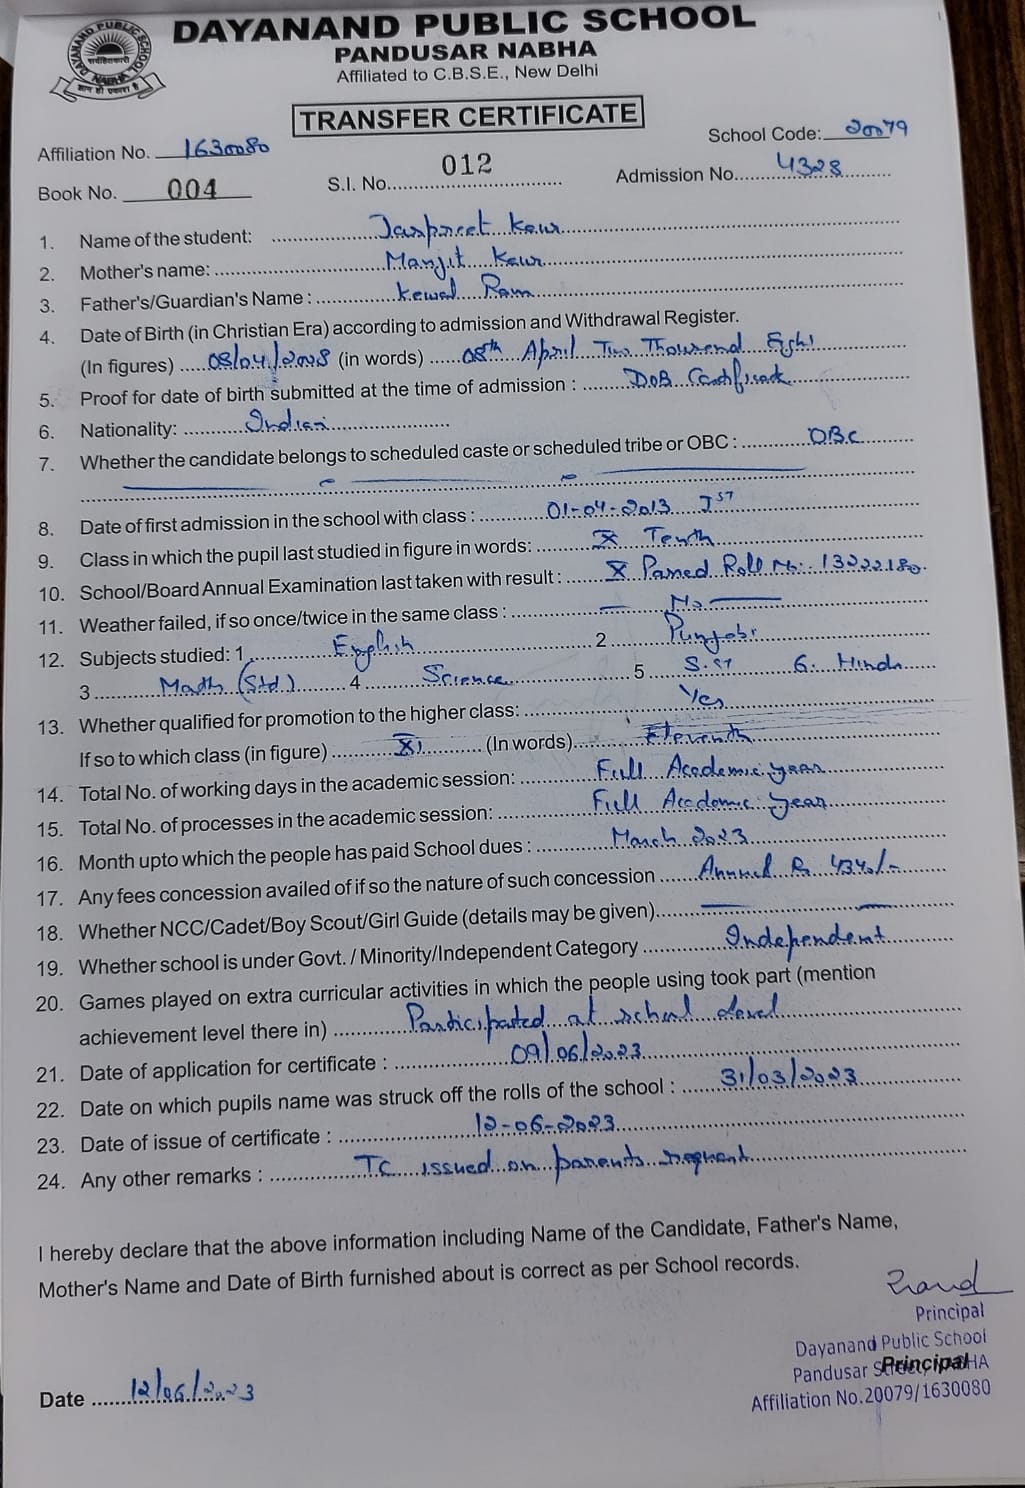 DAYANAND PUBLIC SCHOOL
PANDUSAR NABHA
Affiliated to C.B.S.E., New Delhi
TRANSFER CERTIFICATE
Affiliation No. 1630080 School Code: 20079
Book No. 004 S.I. No. 012 Admission No. 4328
1. Name of the student: Jaspreet Kaur
2. Mother's name: Manjit Kaur
3. Father's/Guardian's Name : Kewal Ram
4. Date of Birth (in Christian Era) according to admission and Withdrawal Register.
(In figures) 08/04/2008 (in words) 08th April Two Thousand Eight
5. Proof for date of birth submitted at the time of admission : DOB Certificate
6. Nationality: Indian
7. Whether the candidate belongs to scheduled caste or scheduled tribe or OBC : OBC
8. Date of first admission in the school with class : 01-04-2013 Ist
9. Class in which the pupil last studied in figure in words: X Tenth
10. School/Board Annual Examination last taken with result : X Passed Roll No: 13222180
11. Weather failed, if so once/twice in the same class : — No —
12. Subjects studied: 1 English 2 Punjabi
3 Math (Std) 4 Science 5 S.ST 6. Hindi
13. Whether qualified for promotion to the higher class: Yes
If so to which class (in figure) XI (In words) Eleventh
14. Total No. of working days in the academic session: Full Academic year
15. Total No. of processes in the academic session: Full Academic year
16. Month upto which the people has paid School dues : March 2023
17. Any fees concession availed of if so the nature of such concession Annual Rs
18. Whether NCC/Cadet/Boy Scout/Girl Guide (details may be given) — —
19. Whether school is under Govt. / Minority/Independent Category Independent
20. Games played on extra curricular activities in which the people using took part (mention
achievement level there in) Participated at school level
21. Date of application for certificate : 09/06/2023
22. Date on which pupils name was struck off the rolls of the school : 31/03/2023
23. Date of issue of certificate : 12-06-2023
24. Any other remarks : TC issued on parents request
I hereby declare that the above information including Name of the Candidate, Father's Name,
Mother's Name and Date of Birth furnished about is correct as per School records.
Principal
Dayanand Public School
Pandusar
Principal
Affiliation No.20079/1630080
Date 12/06/2023